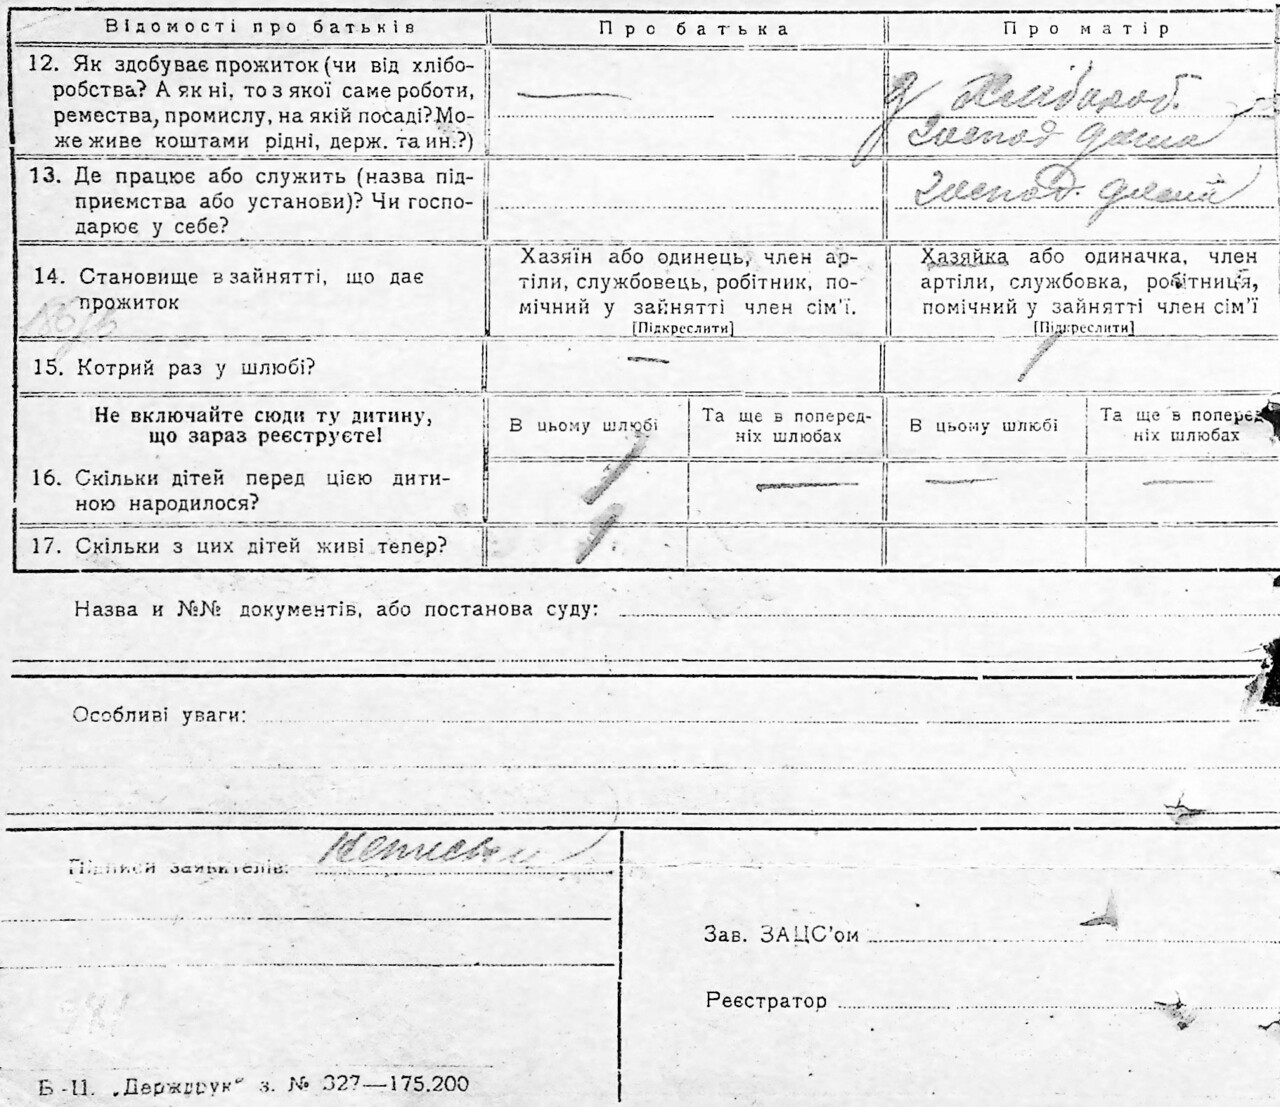 Відомості про батьків
Про батька
Про матір
12. Як здобуває прожиток (чи від хлібо-
робства? А як ні, то з якої саме роботи,
ремества, промислу, на якій посаді? Мо-
же живе коштами рідні, держ. та ин.?)
—
Хлібороб.
господ дома
13. Де працює або служить (назва під-
приємства або установи)? Чи госпо-
дарює у себе?
господ. дома
14. Становище в зайнятті, що дає
прожиток
Хазяїн або одинець, член ар-
тіли, службовець, робітник, по-
мічний у зайнятті член сім'ї.
[Підкреслити]
Хазяйка або одиначка, член
артіли, службовка, робітниця,
помічний у зайнятті член сім'ї
[Підкреслити]
15. Котрий раз у шлюбі?
—
1
Не включайте сюди ту дитину,
що зараз реєструєте!
В цьому шлюбі
Та ще в поперед-
ніх шлюбах
В цьому шлюбі
Та ще в поперед-
ніх шлюбах
16. Скільки дітей перед цією дити-
ною народилося?
— — —
17. Скільки з цих дітей живі тепер?
Назва и №№ документів, або постанова суду:
Особливі уваги:
Підписи заявителів:
Зав. ЗАЦС'ом
Реєстратор
Б-Ц. „Держдрук" з. № 327—175.200